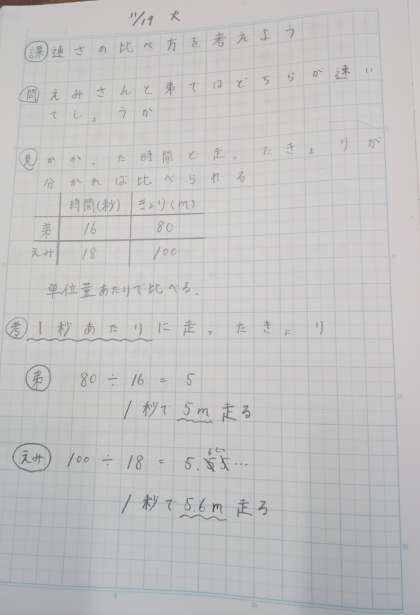 11/19 火
課 速さの比べ方を考えよう
問 えみさんと弟ではどちらが速い
でしょうか
見 かかった時間と走ったきょりが
分かれば比べられる
時間(秒) きょり(m)
弟 16 80
えみ 18 100
単位量あたりで比べる。
考 1秒あたりに走ったきょり
弟 80 ÷ 16 = 5
1秒で5m走る
えみ 100 ÷ 18 = 5.55…
1秒で5.6m走る